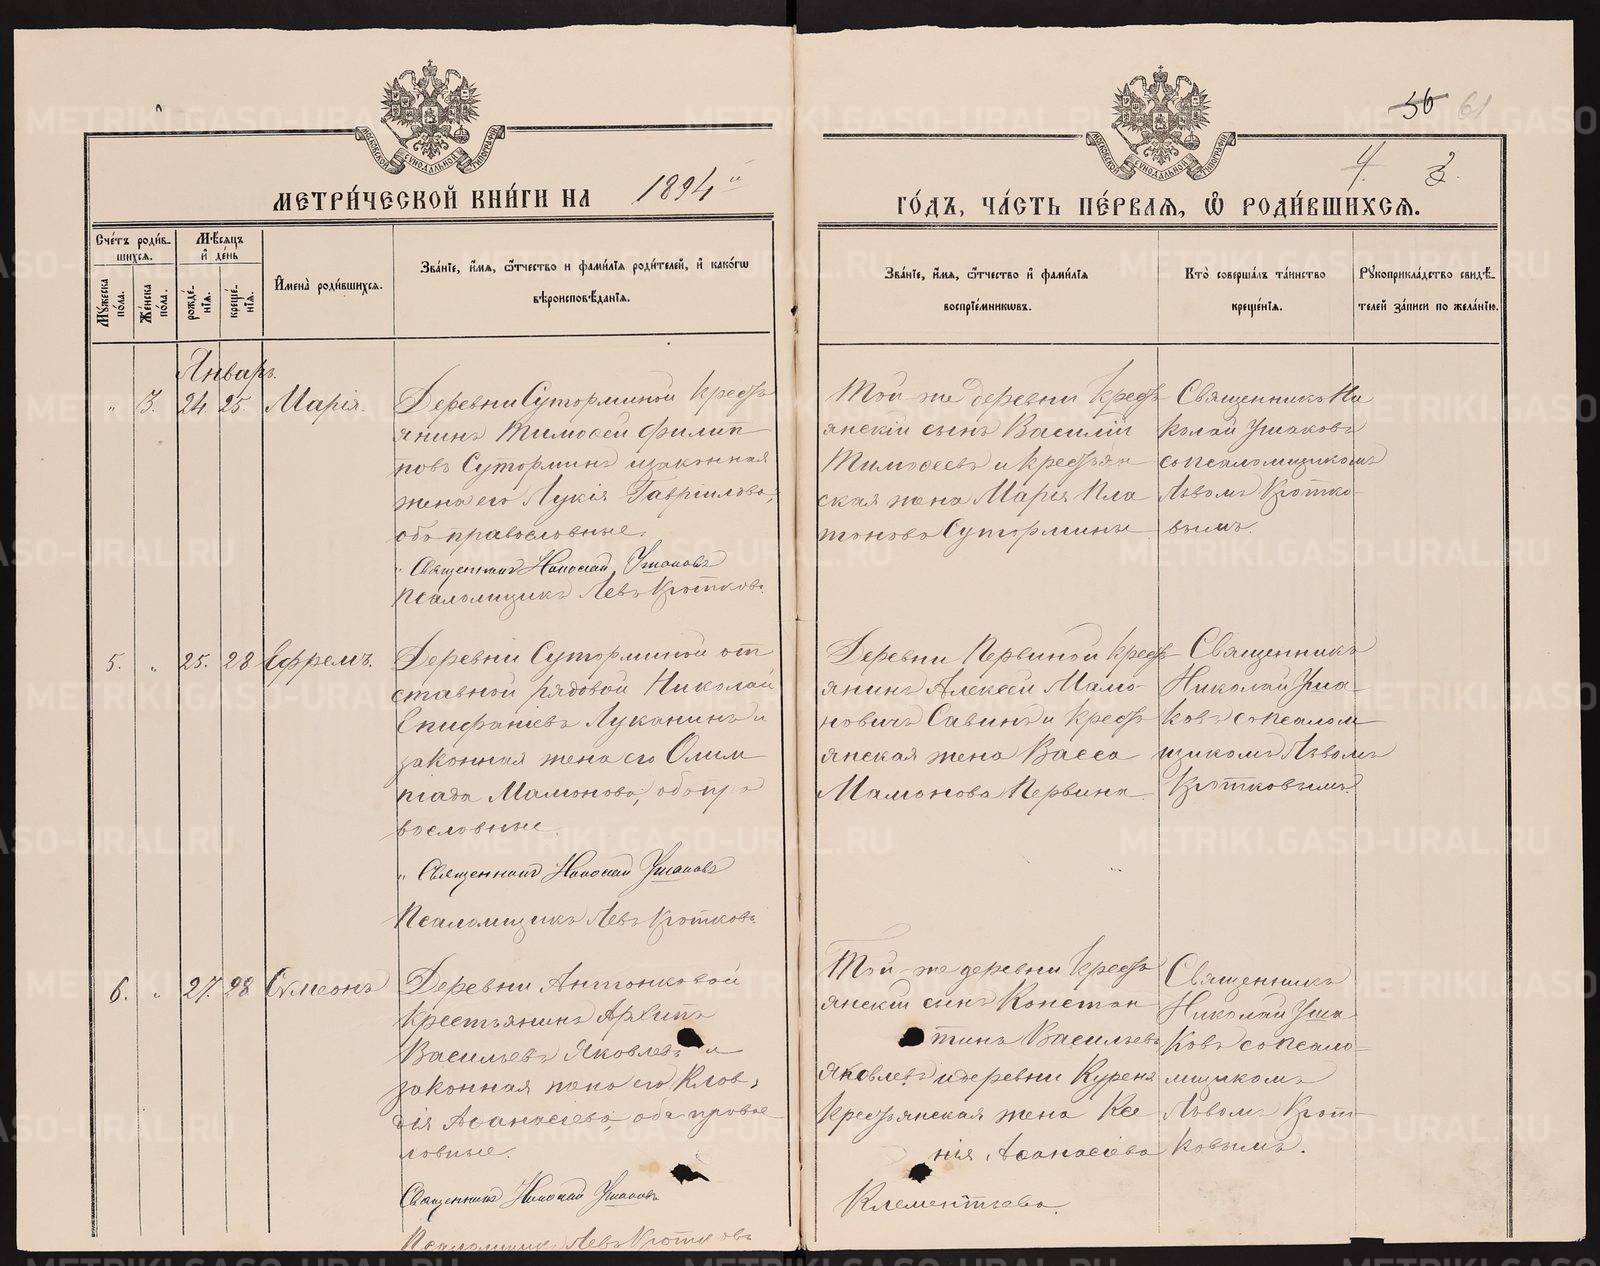 56 61
4. 3.
МОСКОВСКОЙ СѴНОДАЛЬНОЙ ТИПОГРАФІИ
МОСКОВСКОЙ СѴНОДАЛЬНОЙ ТИПОГРАФІИ
МЕТРИ́ЧЕСКОЙ КНИ́ГИ НА 1894й
ГО́ДЪ, ЧА́СТЬ ПЕ́РВАѦ, Ѡ҆ РОДИ́ВШИХСѦ.
Сче́тъ роди́в-
шихсѧ.
Мꙋжеска по́ла.
Же́нска по́ла.
Мѣ́сѧцъ
и҆ де́нь
рожде́-
нїѧ.
креще́-
нїѧ.
И҆мена̀ роди́вшихсѧ.
Зва́нїе, и҆́мѧ, ѻ҆́тчество и фами́лїѧ роди́телей, и҆ како́гѡ
вѣроисповѣ́данїѧ.
Зва́нїе, и҆́мѧ, ѻ҆́тчество и҆ фами́лїѧ
воспрїе́мникѡвъ.
Кто̀ соверша́лъ та́инство
креще́нїѧ.
Рꙋкоприкла́дство свидѣ́-
телей за́писи по жела́нїю.
Январь.
" 3. 24 25 Марія.
Деревни Суторминой крестъ
янинъ Тимоѳей Филип
повъ Суторминъ и законная
жена его Лукія Гавріилова,
оба православные.
Священникъ Николай Ушаковъ
Псаломщикъ Левъ Кротковъ.
Той-же деревни крестъ
янскій сынъ Василій
Тимоѳеевъ и крестьян
ская жена Марія Пла
тонова Сутормины
Священникъ Ни
колай Ушаковъ
съ псаломщикомъ
Львомъ Кротко-
вымъ.
5. " 25. 28 Ефремъ.
Деревни Суторминой от
ставной рядовой Николай
Епифаніевъ Луканинъ и
законная жена его Олим
піада Мамонова, оба пра
вославные.
Священникъ Николай Ушаковъ
Псаломщикъ Левъ Кротковъ
Деревни Первиной крестъ
янинъ Алексѣй Мамо-
новичъ Савинъ и крестъ
янская жена Васса
Мамонова Первина
Священникъ
Николай Уша-
ковъ съ псалом
щикомъ Львомъ
Кротковымъ
6. " 27. 28 Сѵмеонъ
Деревни Антонковой
крестьянинъ Архипъ
Васильевъ Яковлевъ и
законная жена его Клав-
дія Аѳанасіева, оба правос
лавные.
Священникъ Николай Ушаковъ
Псаломщикъ Левъ Кротковъ
Той-же деревни крестъ
янскій сынъ Констан
тинъ Васильевъ
Яковлевъ и деревни Куреня
крестьянская жена Ксе
нія Аѳанасіева
Клементьева.
Священникъ
Николай Уша-
ковъ съ псало-
мщикомъ
Львомъ Крот-
ковымъ.
METRIKI.GASO-URAL.RU